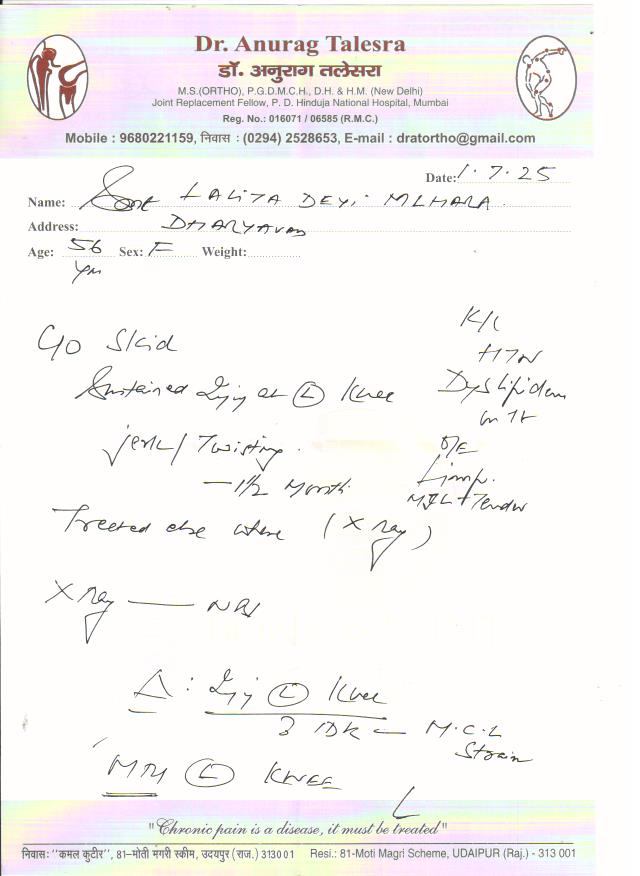 Dr. Anurag Talesra
डॉ. अनुराग तलेसरा
M.S.(ORTHO), P.G.D.M.C.H., D.H. & H.M. (New Delhi)
Joint Replacement Fellow, P. D. Hinduja National Hospital, Mumbai
Reg. No.: 016071 / 06585 (R.M.C.)
Mobile : 9680221159, निवास : (0294) 2528653, E-mail : dratortho@gmail.com
Date: 1.7.25
Name: Smt LALITA DEVI MEHARA
Address: DHARYAVAD
Age: 56 yrs Sex: F Weight:
C/O Skid
Sustained Injy at (L) Knee
jerk / Twisting.
- 1 1/2 Month
Treated else where (X ray)
K/C
HTN
Dyslipidem
on Tt
O/E
Limp.
MJL + Tender
X ray —— NBI
Δ : Injy (L) Knee
? IDK — M.C.L
Strain
MRI (L) KNEE
"Chronic pain is a disease, it must be treated"
निवास: "कमल कुटीर", 81-मोती मगरी स्कीम, उदयपुर (राज.) 313001 Resi.: 81-Moti Magri Scheme, UDAIPUR (Raj.) - 313 001